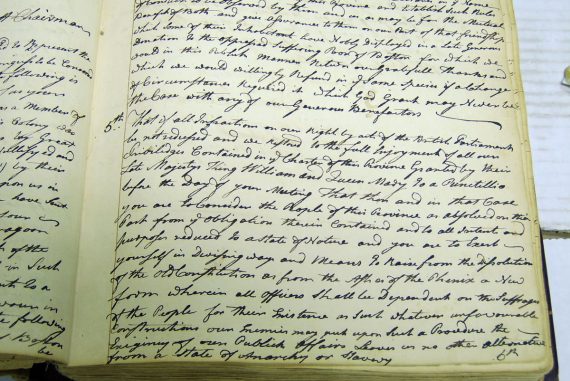 A Cheirman
to Represent the
following is
as a Member of
Colony
by Great
by their
upon us in
have Such
your
of the
in Such
the following
of Boston
be
to be Observed by their
of Both and give assurances to them on our Part of that friendship
which Some of their Inhabitant have Nobly displayed in a late Generous
Donation to the oppresed Suffering Poor of Boston for which we
would in this Publick Manner Return our Gratefull Thanks and
which we would willingly Refund in Some Species if a Change
of Circumstances Required it which God Grant may Never be
the Case with any of our Generous Benefactors
5th That if all Infraction on our Right by act of the British Parliament
be not redressed and we restored to the full Enjoyment of all our
Priviledges Contained in ye Charter of this Province Granted by their
Late Majestys King William and Queen Mary to a Punctillio
before the Day of your Meeting That then and in that Case
you are to Consider the People of this Province as absolved on their
Part from ye Obligation therein Contained and to all Intent and
purposes reduced to a State of Nature and you are to Exert
yourself in Devising ways and Means to Raise from the Dissolution
of the Old Constitution as from the Ashes of the Phenix a New
form wherein all Officers Shall be Dependent on the Suffrages
of the People for their Existence as Such whatever unfavourable
Constructions our Enemies may put upon Such a Procedure the
Exigency of our Publick Affairs Leaves us no other alternative
from a State of Anarchy or Slavery